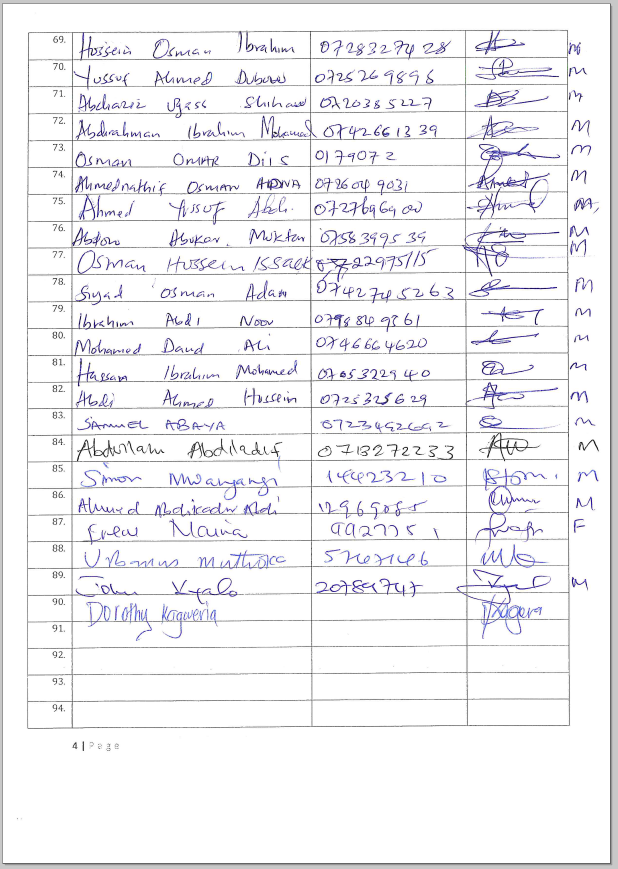 69. Hussein Osman Ibrahim 0728327428 M
70. Yussuf Ahmed Dubow 0725269898 M
71. Abdiaziz Shihaw 0720385227 M
72. Abdirahman Ibrahim Mohamed 0742661339 M
73. Osman OMAR Diis 0179072 M
74. Ahmednathif Osman ADNA 0726049031 M
75. Ahmed Yussuf Abdi. 0727696900 M,
76. Abdow Abukar. Muktar 0758399539 M
77. Osman Hussein ISSACK 22975115 M
78. Siyad Osman Adam 0742745263 M
79. Ibrahim Abdi Noor 0798849361 M
80. Mohamed Daud Ali 0746664620 M
81. Hassan Ibrahim Mohamed 0705322940 M
82. Abdi Ahmed Hussein 0725325629 M
83. SAMUEL ABAYA 0723492692 M
84. Abdullahi Abdiladif 0713272233 M
85. Simon Mwangangi 14423210 M
86. Ahmed Abdikadir Abdi 12969085 M
87. Maina 9927751 F
88. Urbanus Muthoka 5767146
89. John Kyalo 20789747 M
90. Dorothy Kagweria
91.
92.
93.
94.
4 | Page